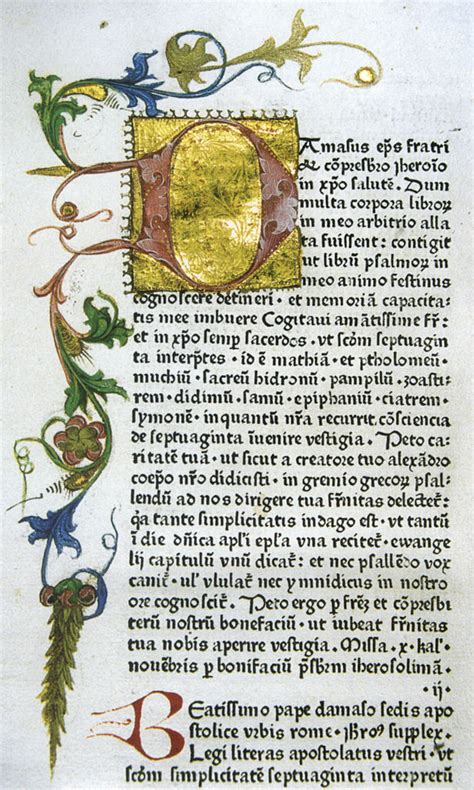 Damasus ep̄s fratri
⁊ cōpresbr̄o Jheroīo
in xp̄o salutē. Dum
multa corpora libroꝝ
in meo arbitrio alla
ta fuissent: contigit
ut librū psalmoꝝ in
meo animo festinus
cognoscere detineri · et memoriā capacita-
tis mee imbuere Cogitaui amātissime fr̄:
et in xp̄o semꝑ sacerdos · vt scōm septuagin
ta interp̄tes · id ē mathiā · et ptholomeū ·
muchiū · sacreū hidronū · pampilū · zoasti-
rem · didimū · samū · epiphaniū · ciatrem ·
symonē · in quantū nr̄a recurrit cōsciencia
de septuaginta īuenire vestigia · Peto cari
tatē tuā · ut sicut a creatore tuo alexādro
coep̄o nr̄o didicisti · in gremio grecoꝝ psal-
lendū ad nos dirigere tua fr̄nitas delectet̄:
q̄a tante simplicitatis indago est · vt tantū
ī die dn̄ica apl̄i ep̄l̄a vna recitet̄ · ewange
lij capitulū vnū dicat̄: et nec psallēdo vox
canit̄ · ul̓ vlulat̄ nec ymnidicus in nostro
ore cognoscit̄. Peto ergo ꝑ fr̄eȝ et cōpresbi
terū nostrū bonefaciū · ut iubeat fr̄nitas
tua nobis aperire vestigia. Missa · x · kal̓
nouēbris ꝑ bonifaciū p̄sbr̄m iherosolimā ·
·ij·
Beatissimo pape damaso sedis apo
stolice vrbis rome · Jero⁹ supplex.
Legi literas apostolatus vestri · vt
scōm simplicitatē septuaginta interpretū